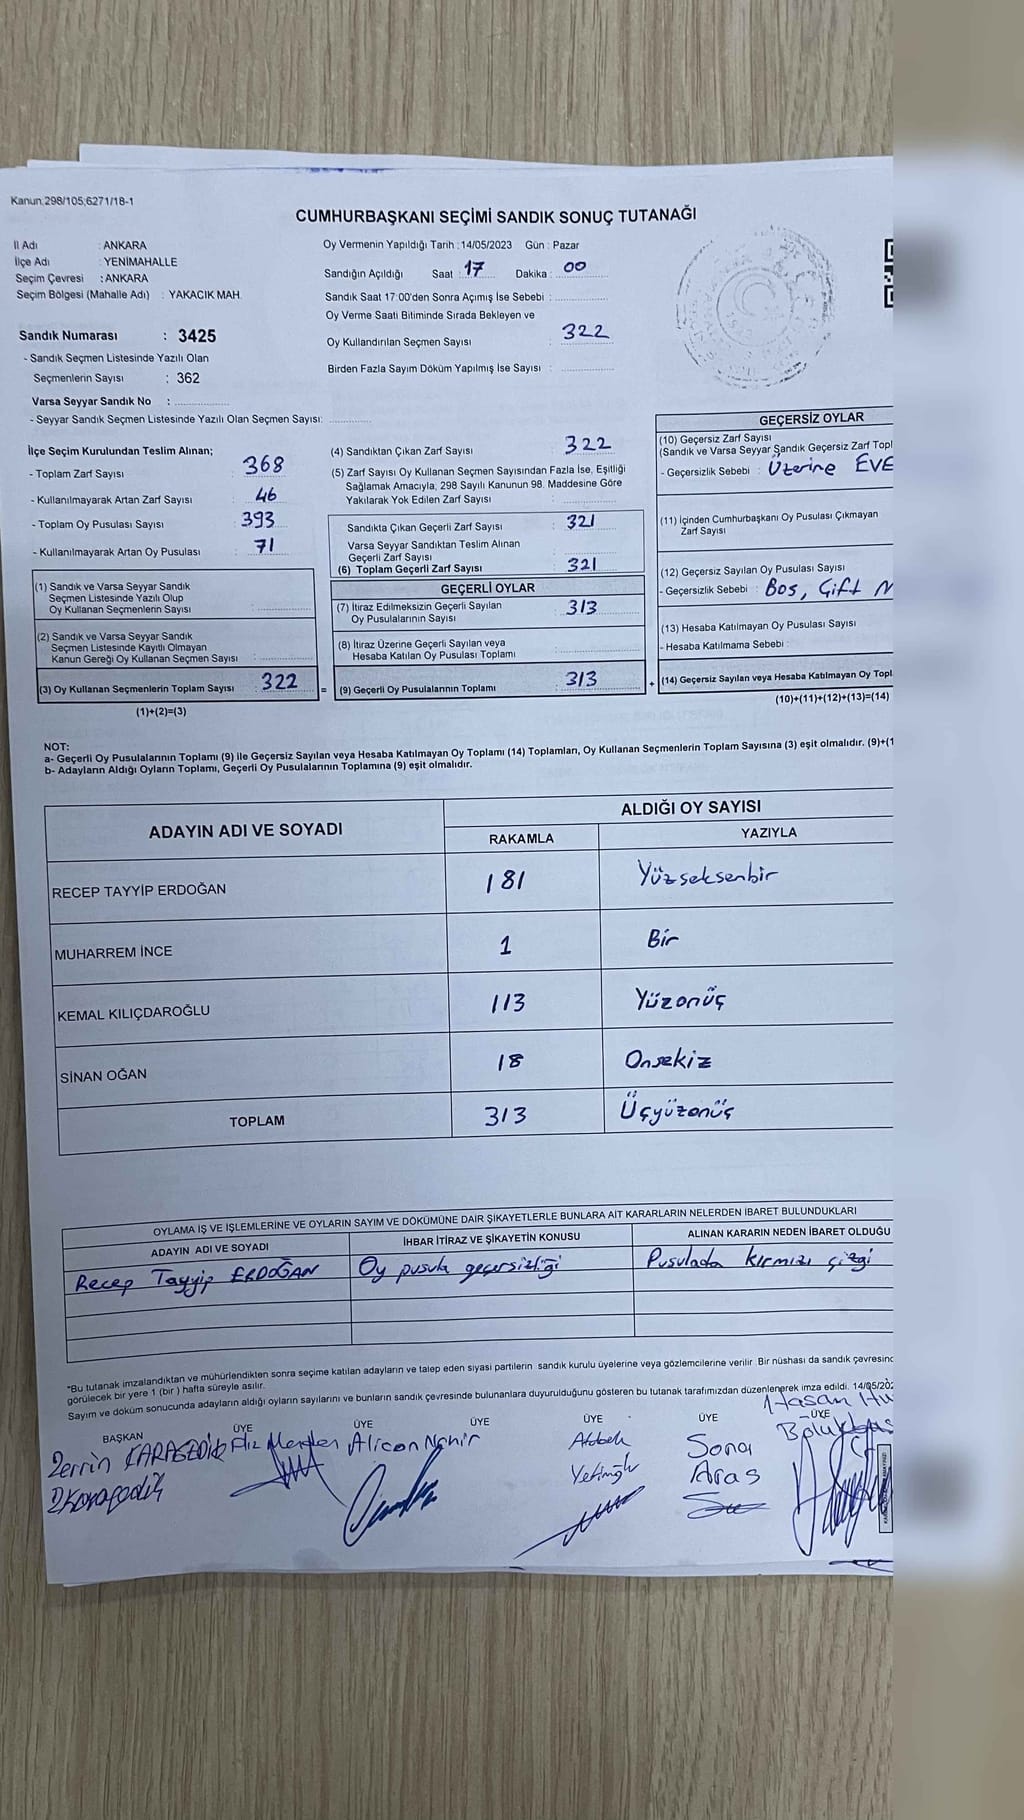 Kanun:298/105;6271/18-1
CUMHURBAŞKANI SEÇİMİ SANDIK SONUÇ TUTANAĞI
İl Adı : ANKARA
İlçe Adı : YENİMAHALLE
Seçim Çevresi : ANKARA
Seçim Bölgesi (Mahalle Adı) : YAKACIK MAH.
Oy Vermenin Yapıldığı Tarih : 14/05/2023 Gün : Pazar
Sandığın Açıldığı Saat : 17 Dakika : 00
Sandık Saat 17:00'den Sonra Açımış İse Sebebi :
Oy Verme Saati Bitiminde Sırada Bekleyen ve
Oy Kullandırılan Seçmen Sayısı : 322
Birden Fazla Sayım Döküm Yapılmış İse Sayısı :
Sandık Numarası : 3425
- Sandık Seçmen Listesinde Yazılı Olan
Seçmenlerin Sayısı : 362
Varsa Seyyar Sandık No :
- Seyyar Sandık Seçmen Listesinde Yazılı Olan Seçmen Sayısı:
İlçe Seçim Kurulundan Teslim Alınan;
- Toplam Zarf Sayısı : 368
- Kullanılmayarak Artan Zarf Sayısı : 46
- Toplam Oy Pusulası Sayısı : 393
- Kullanılmayarak Artan Oy Pusulası : 71
(1) Sandık ve Varsa Seyyar Sandık
Seçmen Listesinde Yazılı Olup
Oy Kullanan Seçmenlerin Sayısı :
(2) Sandık ve Varsa Seyyar Sandık
Seçmen Listesinde Kayıtlı Olmayan
Kanun Gereği Oy Kullanan Seçmen Sayısı :
(3) Oy Kullanan Seçmenlerin Toplam Sayısı : 322
(1)+(2)=(3)
(4) Sandıktan Çıkan Zarf Sayısı : 322
(5) Zarf Sayısı Oy Kullanan Seçmen Sayısından Fazla İse, Eşitliği
Sağlamak Amacıyla, 298 Sayılı Kanunun 98. Maddesine Göre
Yakılarak Yok Edilen Zarf Sayısı :
Sandıkta Çıkan Geçerli Zarf Sayısı : 321
Varsa Seyyar Sandıktan Teslim Alınan
Geçerli Zarf Sayısı :
(6) Toplam Geçerli Zarf Sayısı : 321
GEÇERLİ OYLAR
(7) İtiraz Edilmeksizin Geçerli Sayılan
Oy Pusulalarının Sayısı : 313
(8) İtiraz Üzerine Geçerli Sayılan veya
Hesaba Katılan Oy Pusulası Toplamı :
= (9) Geçerli Oy Pusulalarının Toplamı : 313
GEÇERSİZ OYLAR
(10) Geçersiz Zarf Sayısı
(Sandık ve Varsa Seyyar Sandık Geçersiz Zarf Topl
- Geçersizlik Sebebi : Üzerine EVE
(11) İçinden Cumhurbaşkanı Oy Pusulası Çıkmayan
Zarf Sayısı
(12) Geçersiz Sayılan Oy Pusulası Sayısı
- Geçersizlik Sebebi : Boş, Çift
(13) Hesaba Katılmayan Oy Pusulası Sayısı
- Hesaba Katılmama Sebebi :
+ (14) Geçersiz Sayılan veya Hesaba Katılmayan Oy Topl
(10)+(11)+(12)+(13)=(14)
NOT:
a- Geçerli Oy Pusulalarının Toplamı (9) ile Geçersiz Sayılan veya Hesaba Katılmayan Oy Toplamı (14) Toplamları, Oy Kullanan Seçmenlerin Toplam Sayısına (3) eşit olmalıdır. (9)+(1
b- Adayların Aldığı Oyların Toplamı, Geçerli Oy Pusulalarının Toplamına (9) eşit olmalıdır.
ADAYIN ADI VE SOYADI ALDIĞI OY SAYISI
RAKAMLA YAZIYLA
RECEP TAYYİP ERDOĞAN 181 Yüzseksenbir
MUHARREM İNCE 1 Bir
KEMAL KILIÇDAROĞLU 113 Yüzonüç
SİNAN OĞAN 18 Onsekiz
TOPLAM 313 Üçyüzonüç
OYLAMA İŞ VE İŞLEMLERİNE VE OYLARIN SAYIM VE DÖKÜMÜNE DAİR ŞİKAYETLERLE BUNLARA AİT KARARLARIN NELERDEN İBARET BULUNDUKLARI
ADAYIN ADI VE SOYADI İHBAR İTİRAZ VE ŞİKAYETİN KONUSU ALINAN KARARIN NEDEN İBARET OLDUĞU
Recep Tayyip ERDOĞAN Oy pusula geçersizliği Pusulada kırmızı çizgi
"Bu tutanak imzalandıktan ve mühürlendikten sonra seçime katılan adayların ve talep eden siyasi partilerin sandık kurulu üyelerine veya gözlemcilerine verilir. Bir nüshası da sandık çevresinc
görülecek bir yere 1 (bir) hafta süreyle asılır.
Sayım ve döküm sonucunda adayların aldığı oyların sayılarını ve bunların sandık çevresinde bulunanlara duyurulduğunu gösteren bu tutanak tarafımızdan düzenlenerek imza edildi. 14/05/202
BAŞKAN ÜYE ÜYE ÜYE ÜYE ÜYE ÜYE
Zerrin KARAGEDİK
Sona
Aras
Hasan